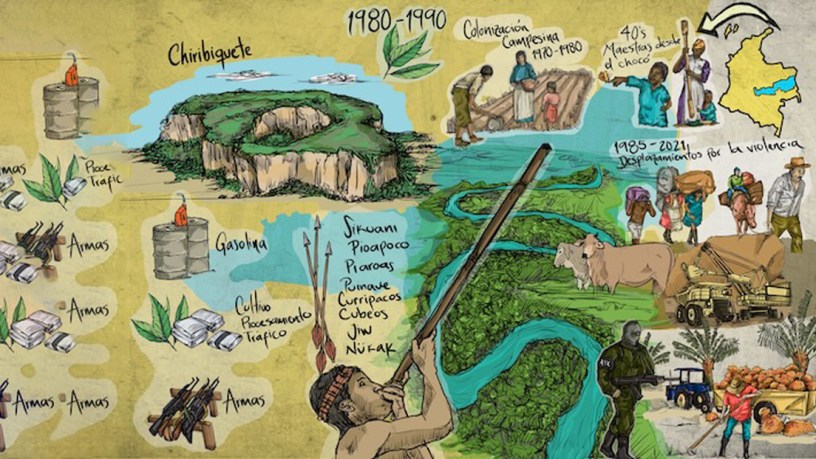 1980-1990
Chiribiquete
Colonización
Campesina
1970-1980
40's
Maestras desde
el chocó
1985-2021
Desplazamientos por la violencia
Armas
Proce
Trafic
Armas
Gasolina
Sikuani
Piapoco
Piaroas
Puinave
Curripacos
Cubeos
Jiw
Nükak
Armas
Cultivo
Procesamiento
Tráfico
Armas
Armas
Armas